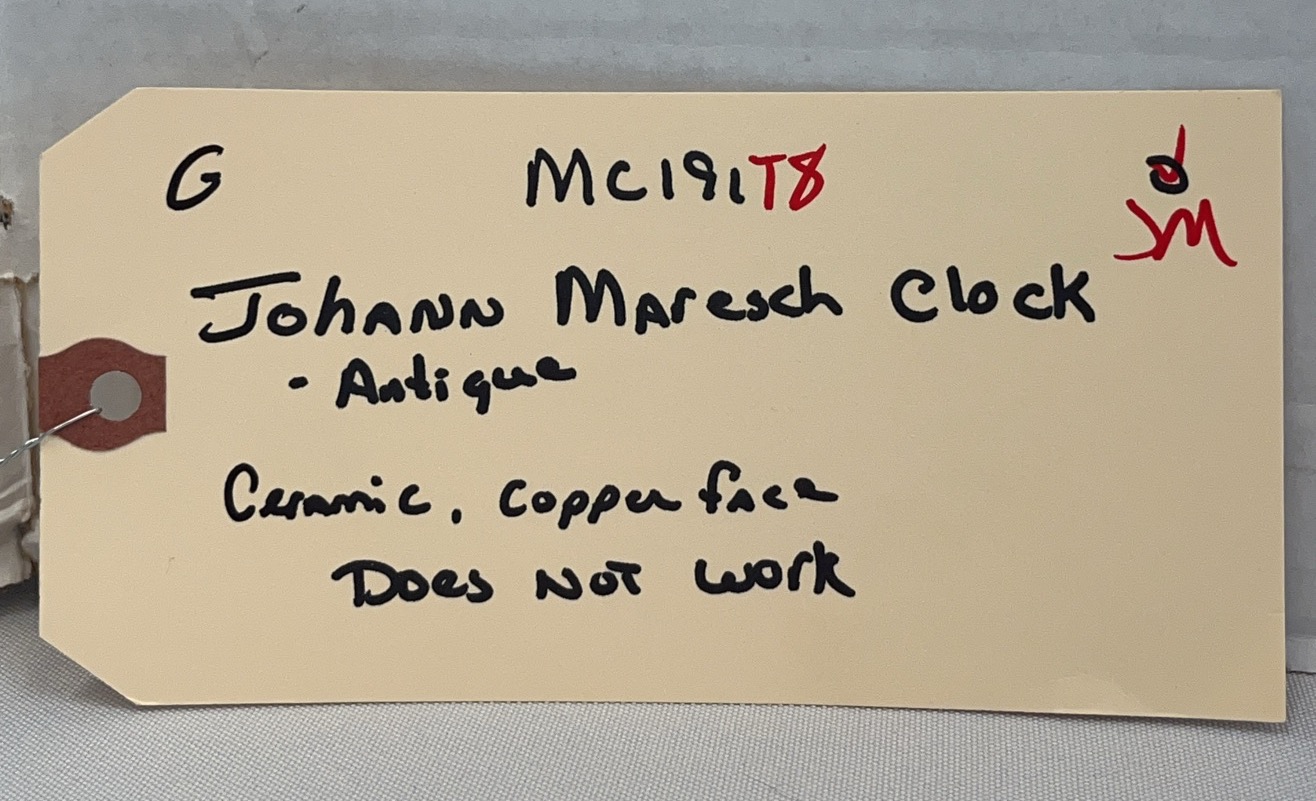 G MC191T8
JM
Johann Maresch Clock
- Antique
Ceramic, Copper face
Does Not Work